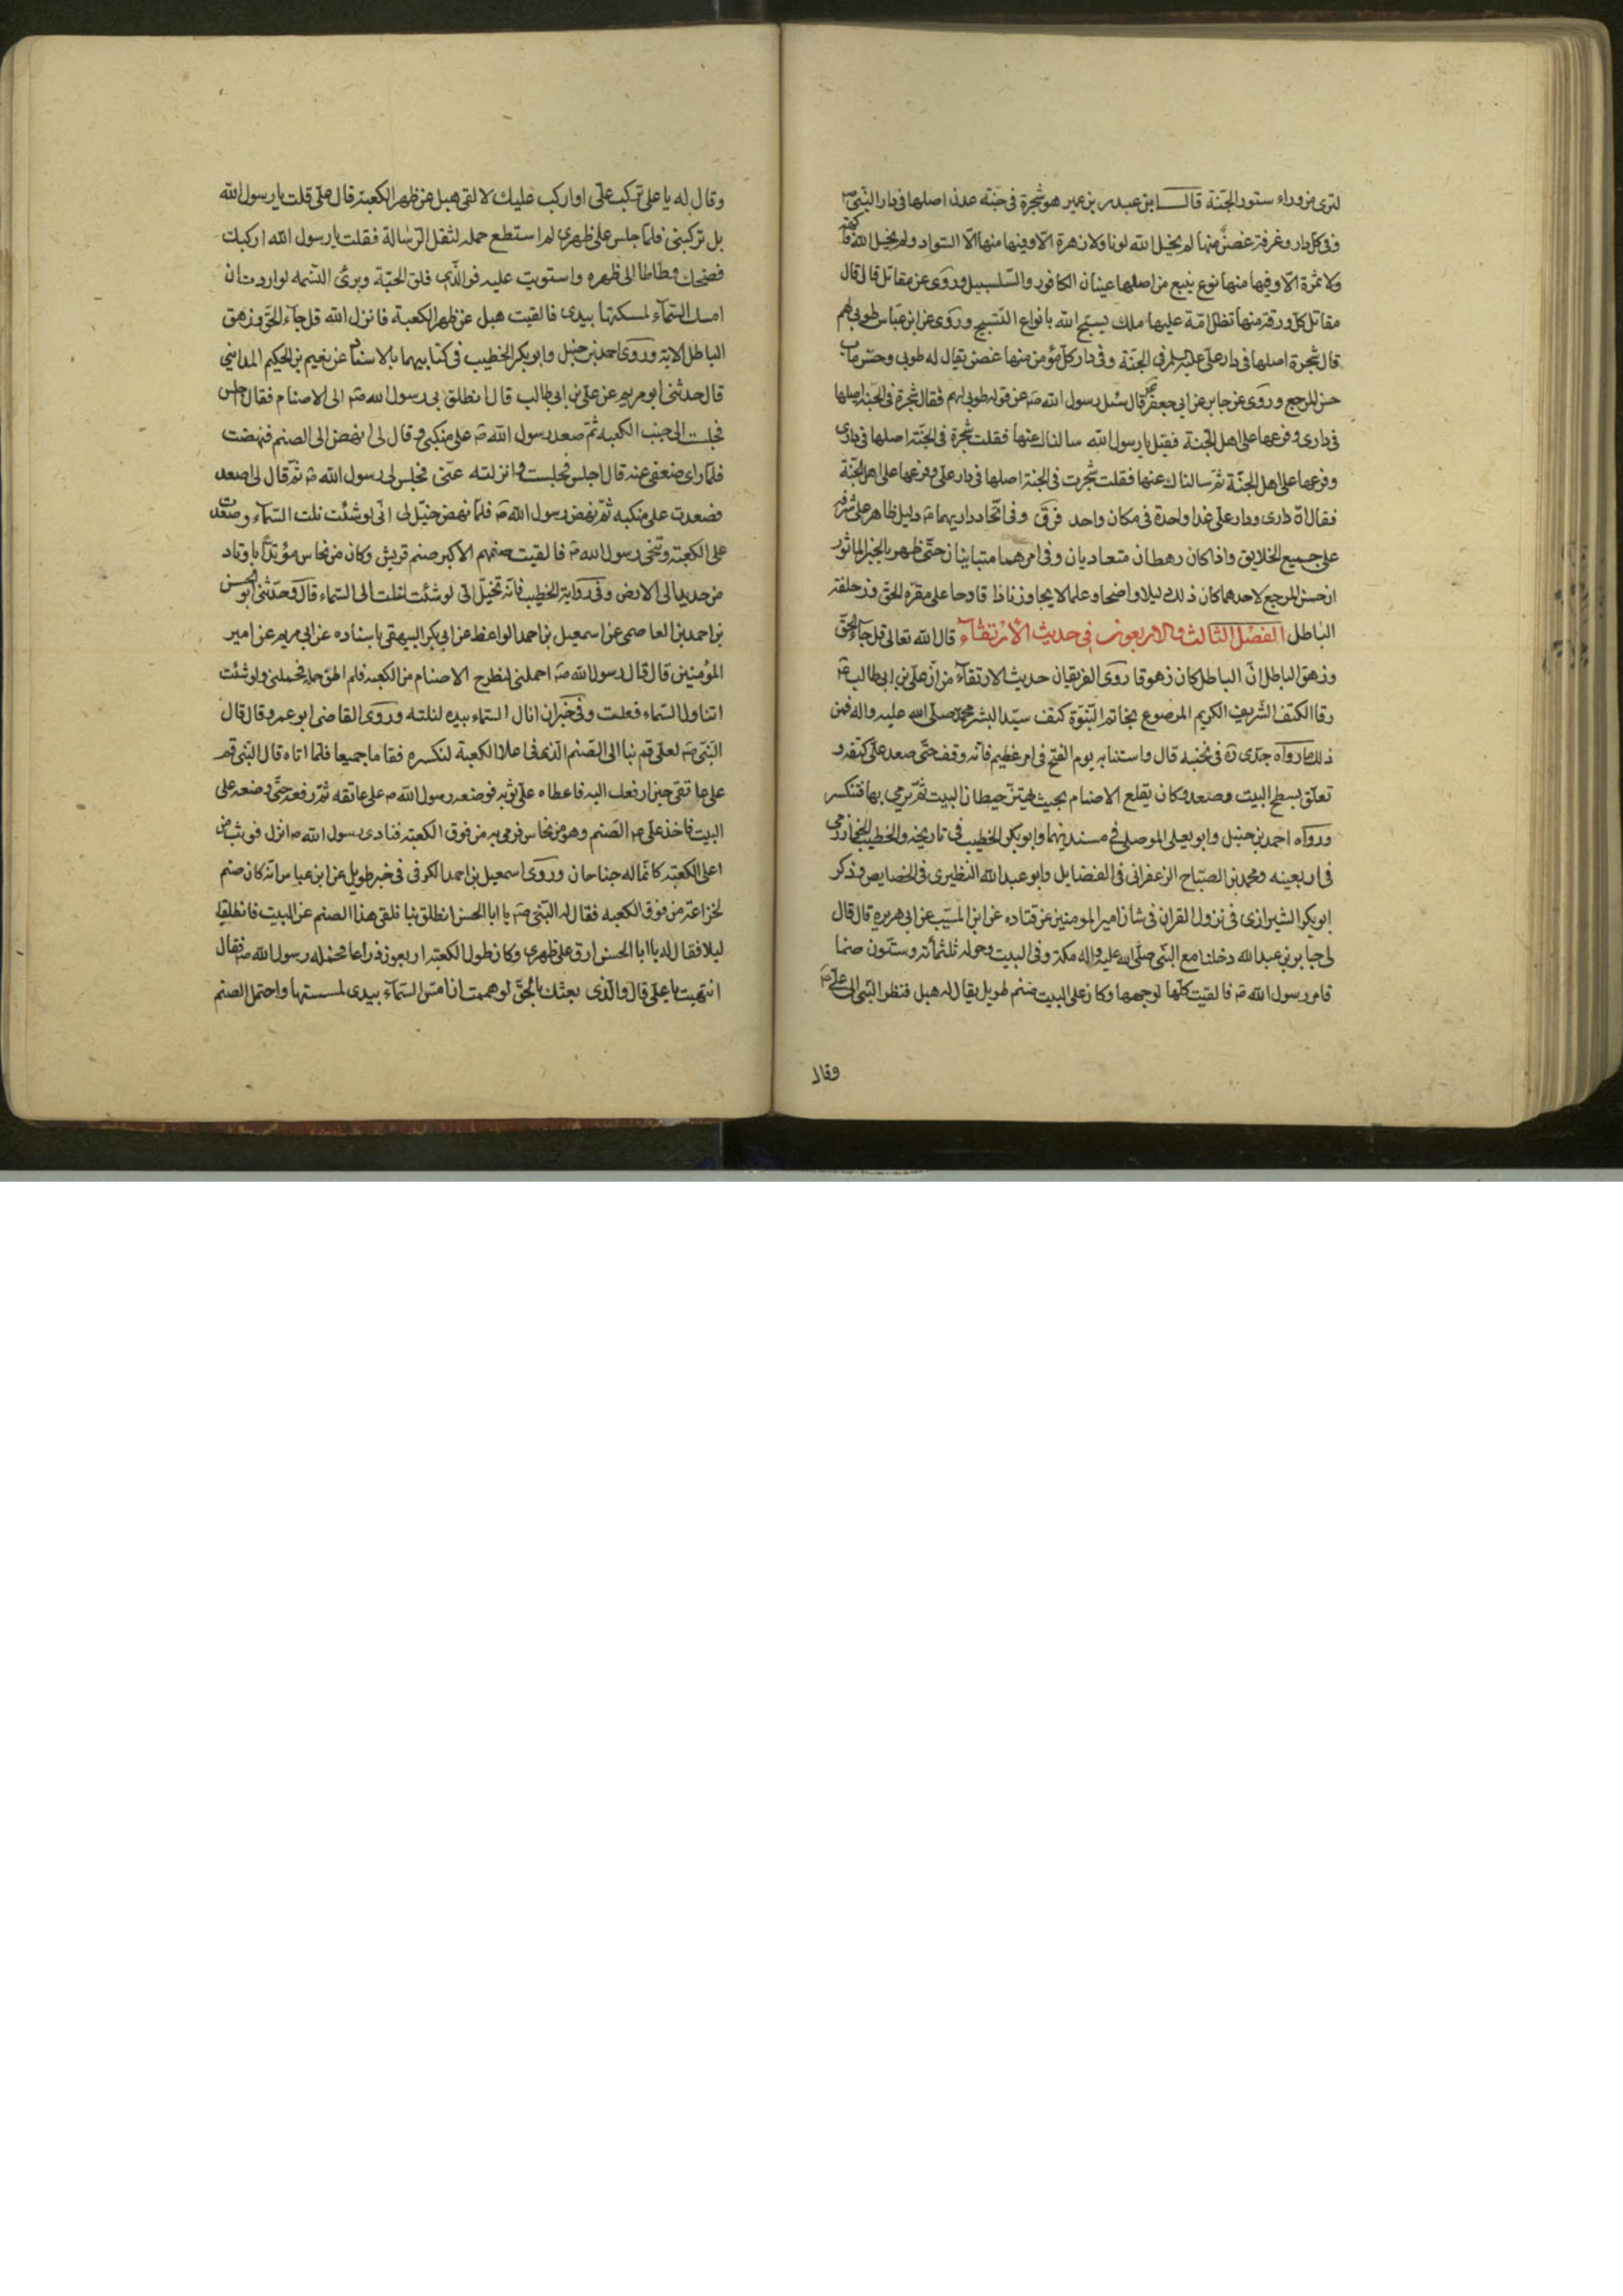 لترى من وراء ستور الجنة قال ابن عبدر بن عمير هو شجرة فى جنة عدن اصلها فى دار النبى ص
وفى كل دار وغرفة غصن منها لم يخلق الله لونا ولا زهرة الا وفيها منها الا السواد ولم يخلق الله فاكهة
ولا ثمرة الا وفيها منها نوع ينبع من اصلها عينان الكافور والسلسبيل وروى عن مقاتل قال قال
مقاتل كل ورقة منها تظل امة عليها ملك يسبح الله بانواع التسبيح وروى عن ابن عباس طوبى لهم
قال شجرة اصلها فى دار على عليه السلم فى الجنة وفى دار كل مؤمن منها غصن يقال له طوبى وحسن ماب
حسن المرجع وروى عن جابر عن ابى جعفر قال سئل رسول الله ص عن قوله طوبى لهم فقال شجرة فى الجنة اصلها
فى دارى وفرعها على اهل الجنة فقيل يا رسول الله سالناك عنها فقلت شجرة فى الجنة اصلها فى دارى
وفرعها على اهل الجنة ثم سالناك عنها فقلت شجرت فى الجنة اصلها فى دار على وفرعها على اهل الجنة
فقال ان دارى ودار على غدا واحدة فى مكان واحد فرقى وفى اتحاد داريهما دليل ظاهر على شرفه
على جميع الخلايق واذا كان رهطان متعاديان وفى امرهما متباينان حتى ظهر بالخبر الماثور
ان حسن المرجع لاحدهما كان ذلك دليلا واضحا وعلما لايحا وزنادا قادحا على مقره الحق وزحلفة
الباطل الفصل الثالث والاربعون فى حديث الارتقاء قال الله تعالى قل جاء الحق
وزهق الباطل ان الباطل كان زهوقا روى الفريقان حديث الارتقاء من ان على بن ابى طالب ع
رقا الكتف الشريف الكريم الموضوع بخاتم النبوة كتف سيد البشر محمد صلى الله عليه واله فمن
ذلك ما رواه جدى ره فى نخبه قال واستنابه يوم الفتح فى امر عظيم فانه وقف حتى صعد على كتفه و
تعلق بسطح البيت وصعد وكان يقلع الاصنام بحيث يهتز حيطان البيت ثم يرمى بها فتنكسر
ورواه احمد بن حنبل وابو يعلى الموصلى فى مسنديهما وابو بكر الخطيب فى تاريخه والخطيب الخوارزمى
فى اربعينه ومحمد بن الصباح الزعفرانى فى الفضايل وابو عبد الله النظيرى فى الخصايص وذكر
ابو بكر الشيرازى فى نزول القران فى شان امير المومنين عن قتاده عن ابن المسيب عن ابى هريره قال قال
لى جابر بن عبد الله دخلنا مع النبى صلى الله عليه واله مكة وفى البيت وحوله ثلثمائة وستون صنما
فامر رسول الله ص فالقيت كلها لوجهها وكان على البيت صنم طويل يقال له هبل فنظر النبى الى على ع
وقال
وقال له يا على تركب على او اركب عليك لالقى هبل عن ظهر الكعبة قال على قلت يا رسول الله
بل تركبنى فلما جلس على ظهرى لم استطع حمله لثقل الرسالة فقلت يا رسول الله اركبك
فضحك وطاطا الى ظهره واستويت عليه فوالذى فلق الحبة وبرئ النسمه لو اردت ان
امسك السماء لمسكتها بيدى فالقيت هبل عن ظهر الكعبة فانزل الله قل جاء الحق وزهق
الباطل الاية وروى احمد بن حنبل وابو بكر الخطيب فى كتابيهما بالاسناد عن نعيم بن الحكيم المداينى
قال حدثنى ابو مريم عن على بن ابى طالب قال انطلق بى رسول الله ص الى الاصنام فقال اجلس
فجلست الى جنب الكعبه ثم صعد رسول الله ص على منكبى وقال لى انهض الى الصنم فنهضت
فلما راى ضعفى عنه قال اجلس فجلست وانزلته عنى فجلس لى رسول الله ص ثم قال لى اصعد
فصعدت على منكبه ثم نهض رسول الله ص فلما نهض خيل لى انى لو شئت نلت السماء وصعدت
على الكعبة وتنحى رسول الله ص فالقيت صنمهم الاكبر صنم قريش وكان من نحاس مؤتدا باوتاد
من حديد الى الارض وفى رواية الخطيب فانه تخيل الى لو شئت لنلت الى السماء قال وحدثنى ابو الحسن
بن احمد بن العاصمى عن اسمعيل بن احمد الواعظ عن ابى بكر البيهقى باسناده عن ابى مريم عن امير
المؤمنين قال قال رسول الله ص احملنى لنطرح الاصنام من الكعبه فلم اطق حمله فحملنى ولو شئت
اتناول السماء فعلت وفى خبر ان انال السماء بيده لنلته وروى القاضى ابو عمر وقال قال
النبى ص لعلى قم بنا الى الصنم الذى فى اعلا الكعبة لنكسره فقاما جميعا فلما اتاه قال النبى قم
على عاتقى حين ارفعك اليه فاعطاه على ثوبه فوضعه رسول الله ص على عاتقه ثم رفعه حتى وضعه على
البيت فاخذ على ع الصنم وهو من نحاس فرمى به من فوق الكعبة فنادى رسول الله ص انزل فوثب من
اعلى الكعبة كانما له جناحان وروى اسمعيل بن احمد الكوفى فى خبر طويل عن ابن عباس انه كان صنم
لخزاعة من فوق الكعبه فقال له النبى ص يا ابا الحسن انطلق بنا نلقى هذا الصنم عن البيت فانطلقا
ليلا فقال له يا ابا الحسن ارق على ظهرى وكان طول الكعبة اربعون ذراعا فحمله رسول الله ص فقال
انتهيت يا على قال والذى بعثك بالحق لو هممت ان امس السماء بيدى لمسستها واحتمل الصنم